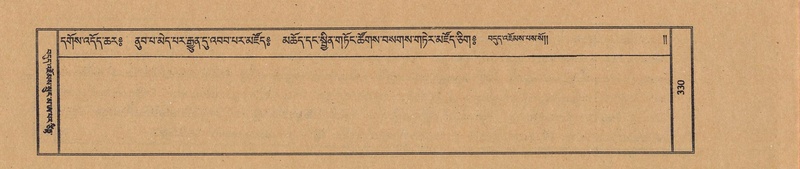 དགོས་འདོད་ཆར༔ ནུབ་པ་མེད་པར་རྒྱུན་དུ་འབབ་པར་མཛོད༔ མཆོད་དང་སྦྱིན་གཏོང་ཚོགས་བསགས་གཏེར་མཛོད་ཅིག༔ བདུད་འཇོམས་པས་སོ།། །།
330